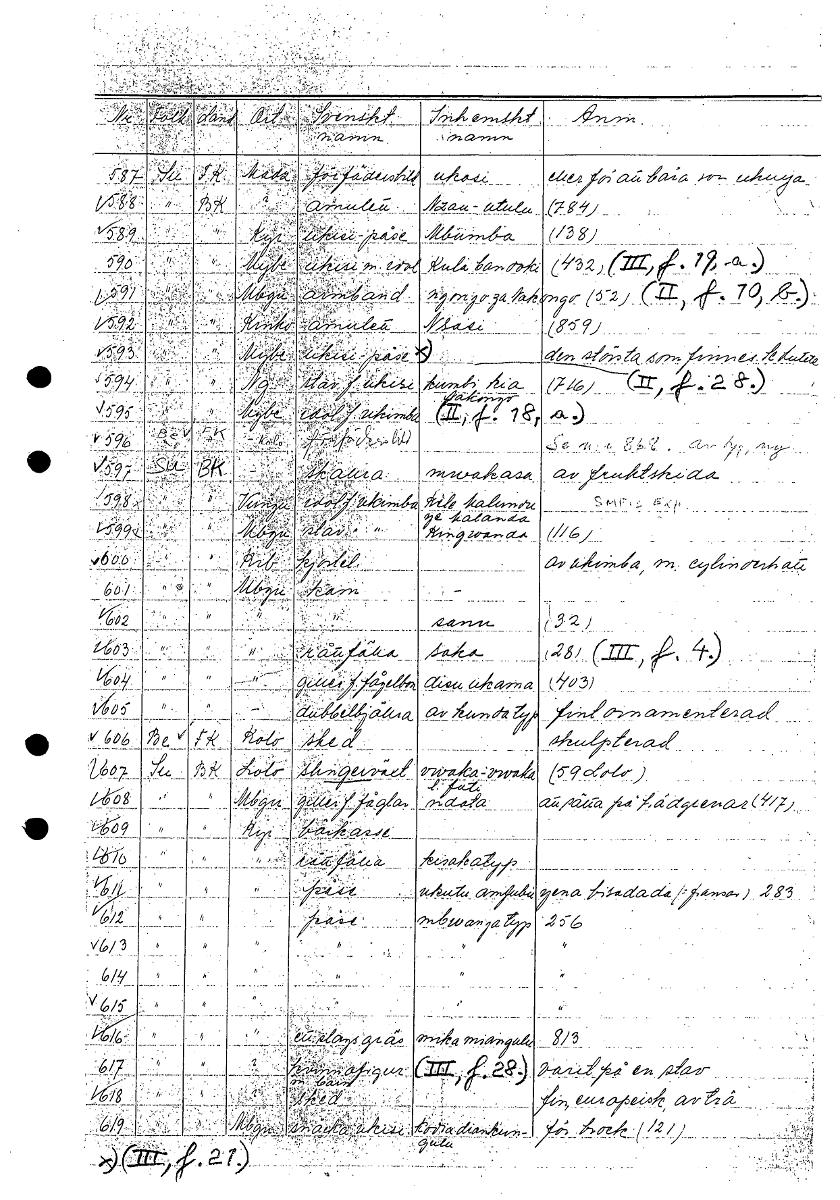 Nr Fält Land Ort Svenskt namn Inhemskt namn Anm.
587 Su FK Mada förfädersbild ukosi
588 " BK " amulett Nzau-utulu (784)
589 " " Kyr ukisi-påse Mbumba (138)
590 " " Mybe ukisi m. idol Kula banooki (432) (III, f. 19, a.)
591 " " Mbgu armband ngongo za bakongo (52) (II, f. 10, b.)
592 " " Kinko amulett Nsasi (859)
593 " " Mybe ukisi-påse x) den största som finnes
594 " " Ng stav f. ukisi kumbi kia bakongo (746) (II, f. 28.)
595 " " Mybe idol f. ukimba (II, f. 18, a.)
596 Be FK Kolo förfädersbild Se n:r 868. av
597 Su BK - skallra mwakasa av fruktskida
598 " " Vungu idol f. ukimba
599 " " Mbgu stav " " Kingwanda (116)
600 " " Krb kjortel av ukimba, m. cylinderhatt
601 " " Mbgu kam -
602 " " " " sanu (32)
603 " " " råttfälla saka (28) (III, f. 4.)
604 " " " giller f. fågelbon disu ukama (403)
605 " " - dubbelbjällra av kunda typ fint ornamenterad
606 Be FK Kolo sked skulpterad
607 Su BK Lolo slingerväxt vwaka-vwaka l. futi (59 Lolo)
608 " " Mbgu giller f. fåglar ndata att sätta på trädgrenar (417)
609 " " Kyr bärkasse
610 " " " råttfälla kisakatyp
611 " " " påse ukutu amfubu yena bisadada (: fransar) 283
612 " " påse mbwanga typ 256
613 " " " " " "
614 " " " " " "
615 " " " " " "
616 " " " ett slags gräs mika miangulu 813
617 " " ? kvinnofigur m barn (III, f. 28.) varit på en stav
618 " " sked fin, europeisk, av trä
619 " " Mbgu snäcka ukisi kodia diankungulu för trock (121)
x) (III, f. 21.)